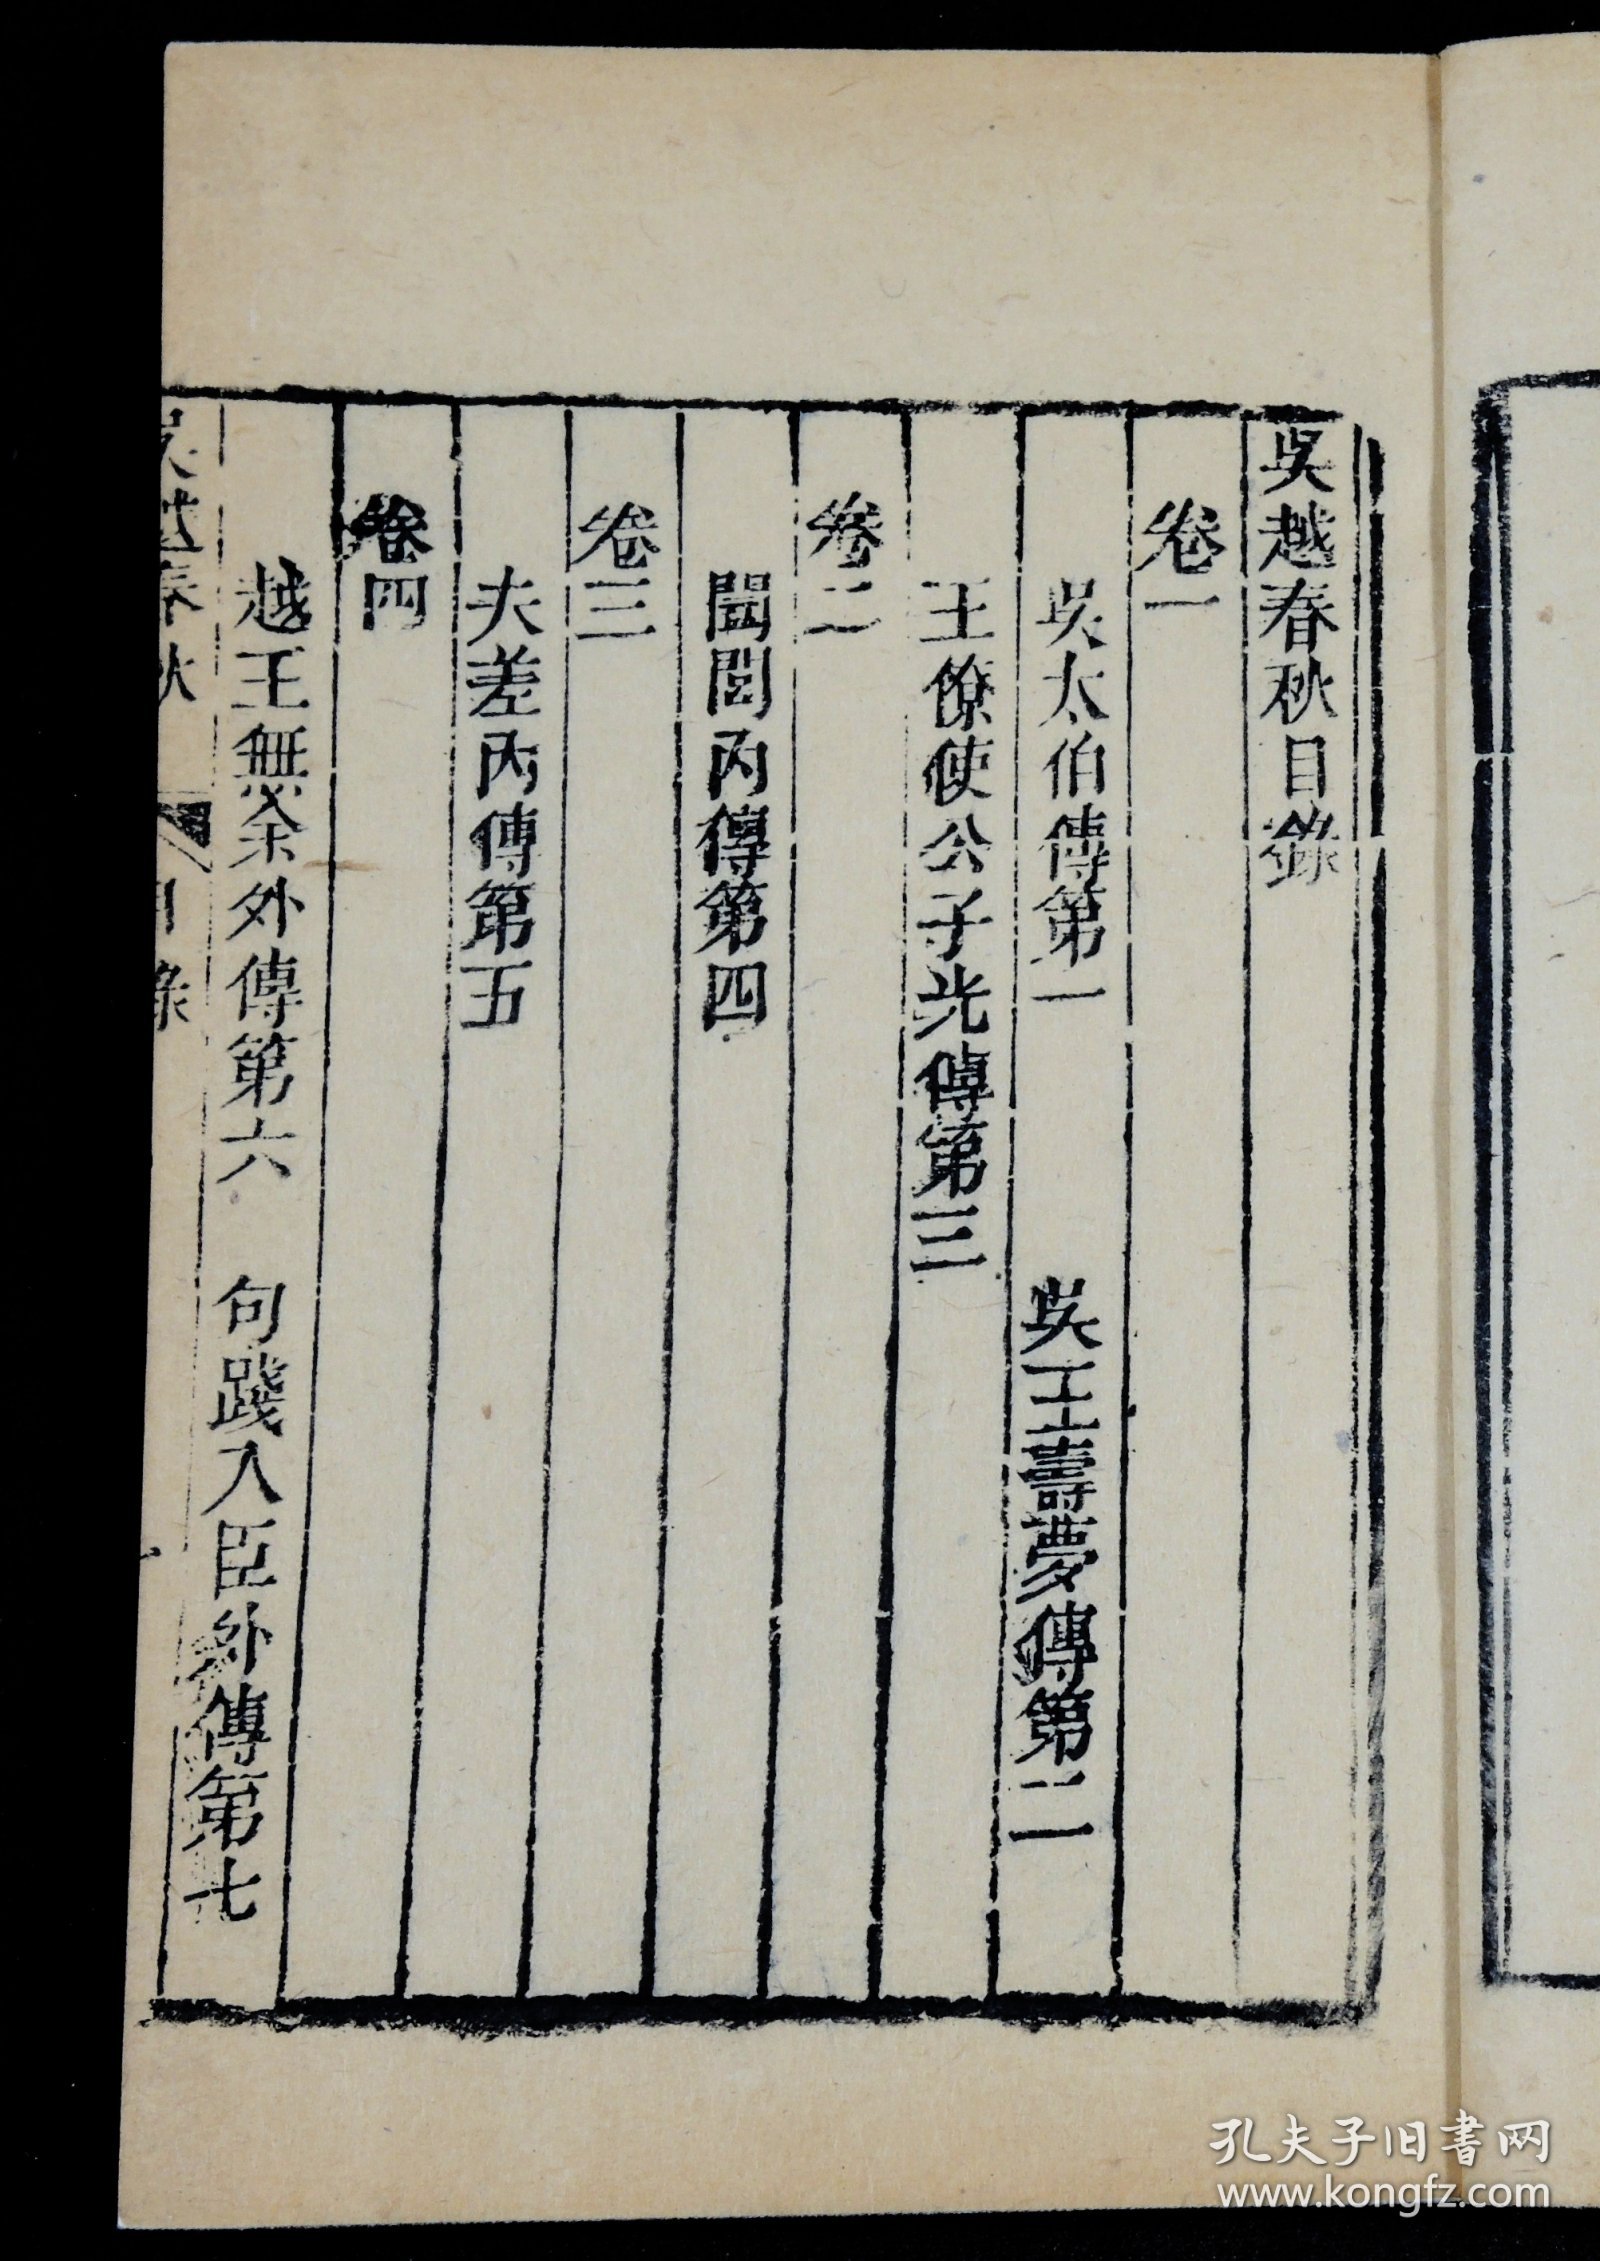 吳越春秋目錄
卷一
吳太伯傳第一 吳王壽夢傳第二
王僚使公子光傳第三
卷二
闔閭內傳第四
卷三
夫差內傳第五
卷四
越王無余外傳第六 句踐入臣外傳第七
吳越春秋 目錄 一
孔夫子旧書网
www.kongfz.com